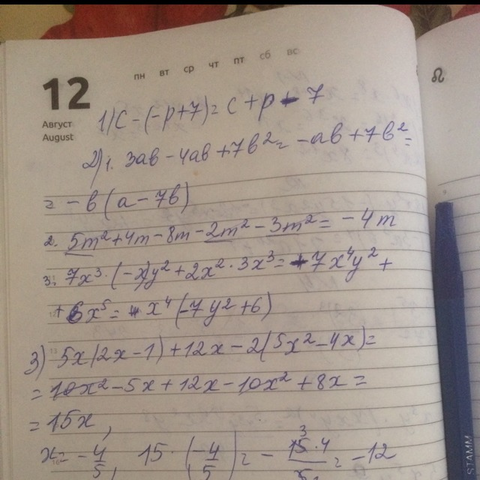 пн вт ср чт пт сб вс
12
Август
August
1) c - (-p+7) = c + p - 7
2) 1. 3ab - 4ab + 7b² = -ab + 7b² =
= -b (a - 7b)
2. 5m² + 4m - 8m - 2m² - 3m² = -4m
3. 7x³ · (-x)y² + 2x² · 3x³ = -7x⁴y² +
+ 6x⁵ = x⁴ (-7y² + 6)
3) 5x(2x-1) + 12x - 2(5x² - 4x) =
= 10x² - 5x + 12x - 10x² + 8x =
= 15x,
x = -4/5, 15 · (-4/5) = - 15·4/5 = -12
STAMM